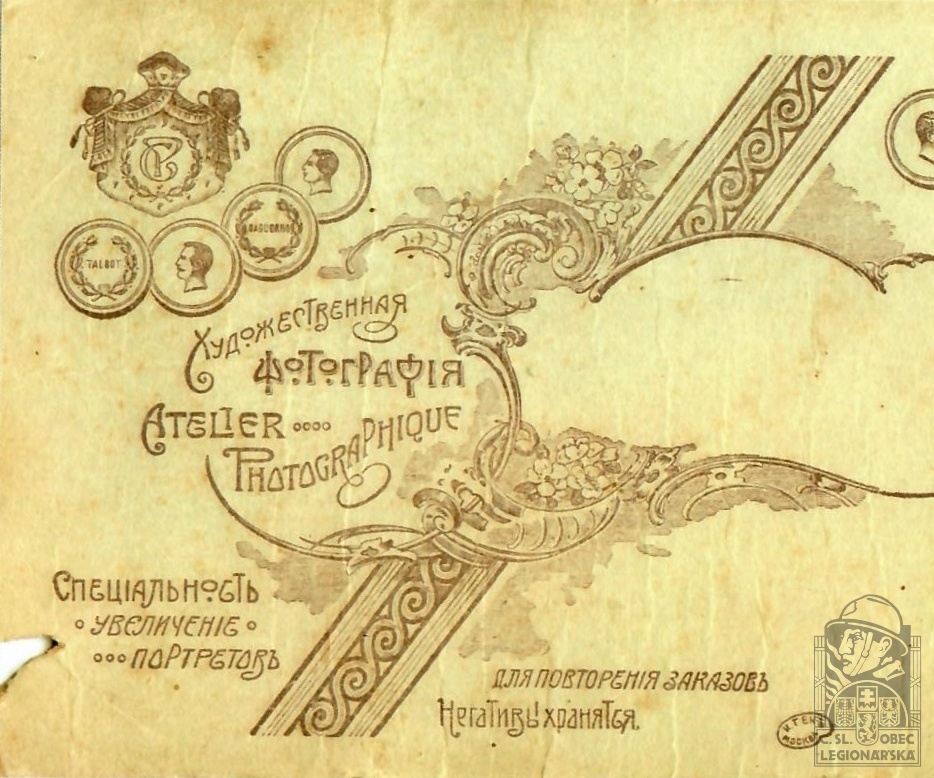 TALBOT
Художественная
Фотографія
ATELIER
PHOTOGRAPHIQUE
Спеціальность
увеличеніе
портретовъ
для повторенія заказовъ
Негативы хранятся.
МОСКВА
Č. SL. OBEC
LEGIONÁŘSKÁ